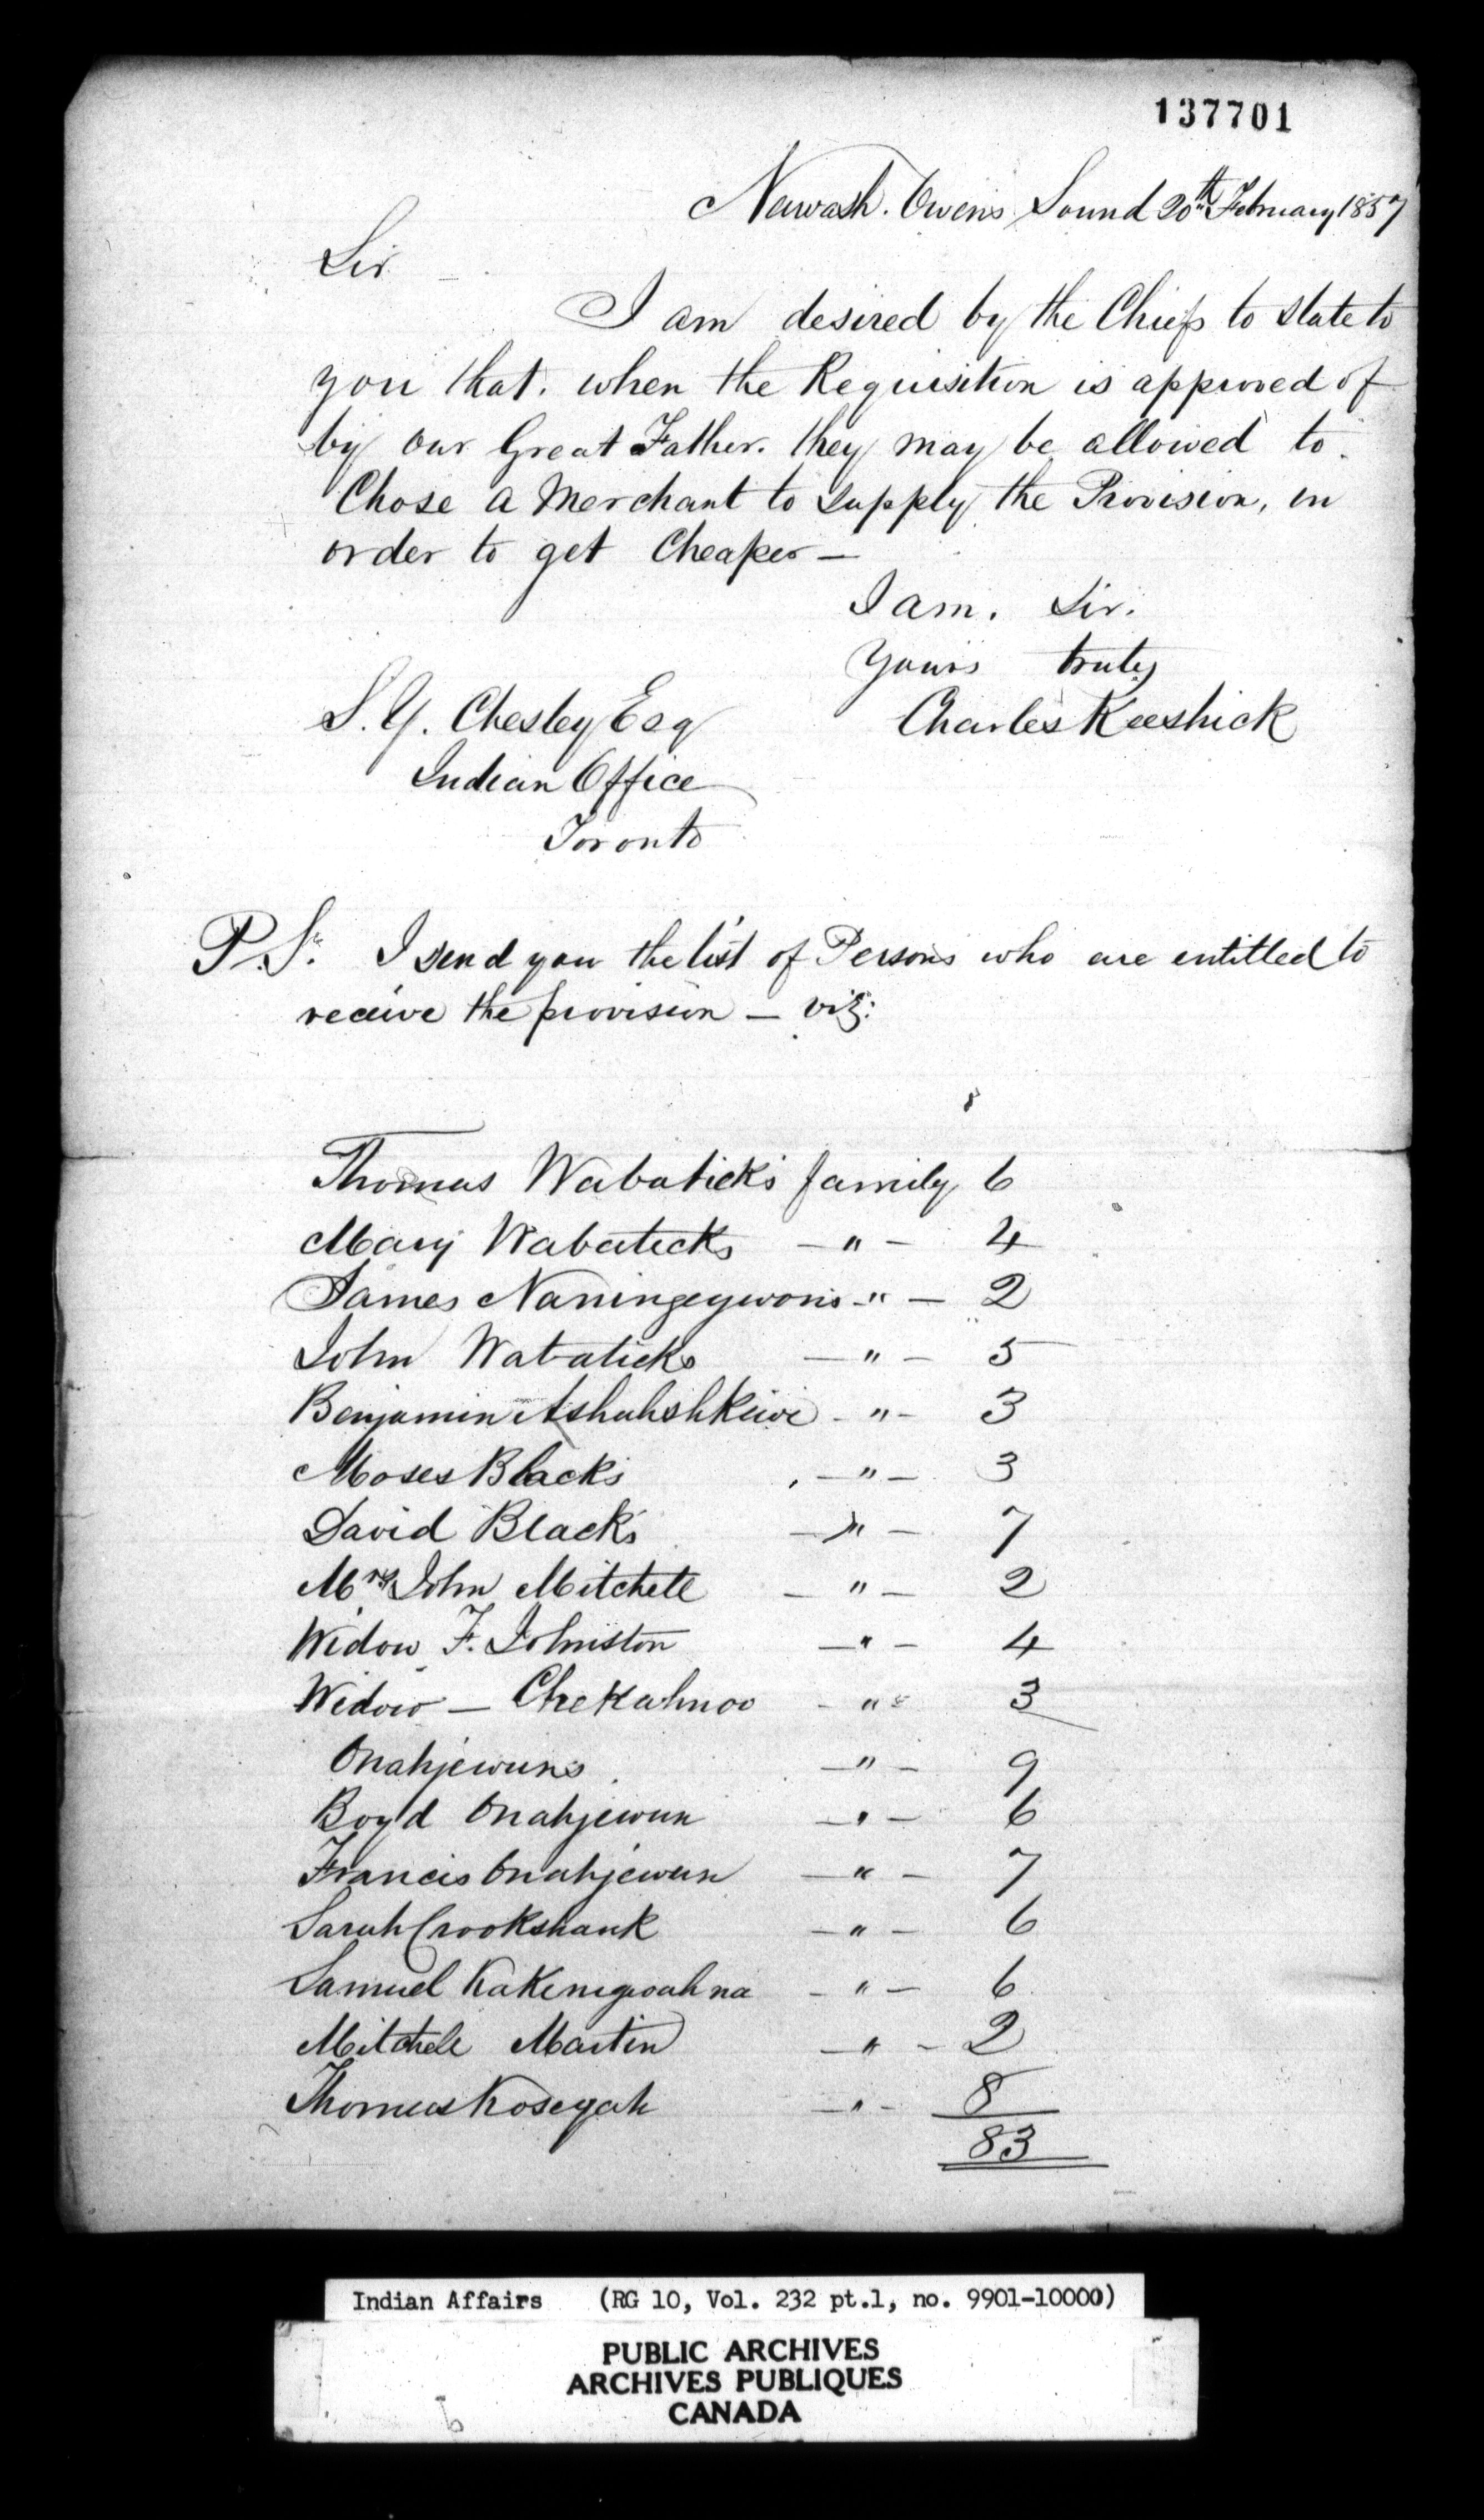 137701
Nawash. Owen's Sound 20th February 1857
Sir
I am desired by the Chiefs to state to
you that. when the Requisition is approved of
by our Great Father. they may be allowed to
Chose a Merchant to supply the Provision, in
order to get Cheaper —
I am. Sir.
Yours truly
S. Y. Chesley Esq Charles Keeshick
Indian Office
Toronto
P.S. I send you the list of Persons who are entitled to
receive the provision — viz:
Thomas Wabatick's family 6
Mary Wabaticks — " — 4
James Naningeywons - " — 2
John Wabaticks — " — 5
Benjamin Ashahshkeiwe - " - 3
Moses Black's — " — 3
David Black's — " — 7
Mrs John Mitchell — " — 2
Widow F. Johnston — " — 4
Widow — Chekahnoo - " - 3
Onahjewuns — " — 9
Boyd Onahjewun — " — 6
Francis Onahjewun — " — 7
Sarah Crookshank — " — 6
Samuel Kakenigwahna - " — 6
Mitchele Martin — " - 2
Thomas Kosegah — " - 8
83
Indian Affairs (RG 10, Vol. 232 pt.1, no. 9901-10000)
PUBLIC ARCHIVES
ARCHIVES PUBLIQUES
CANADA